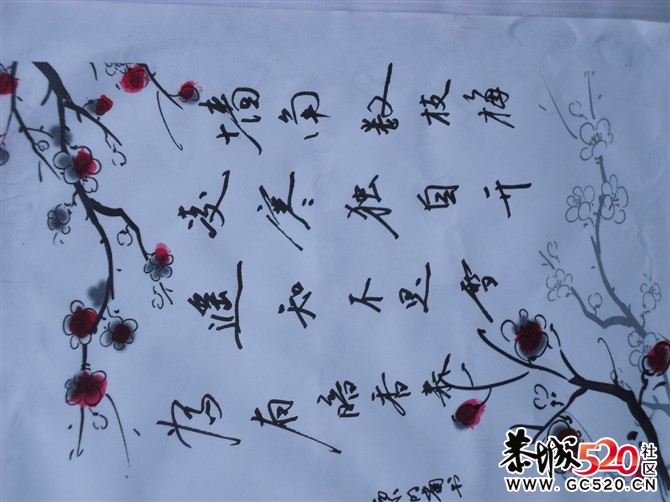 墙角数枝梅
凌寒独自开
遥知不是雪
为有暗香来
恭城520社区
WWW.GC520.CN